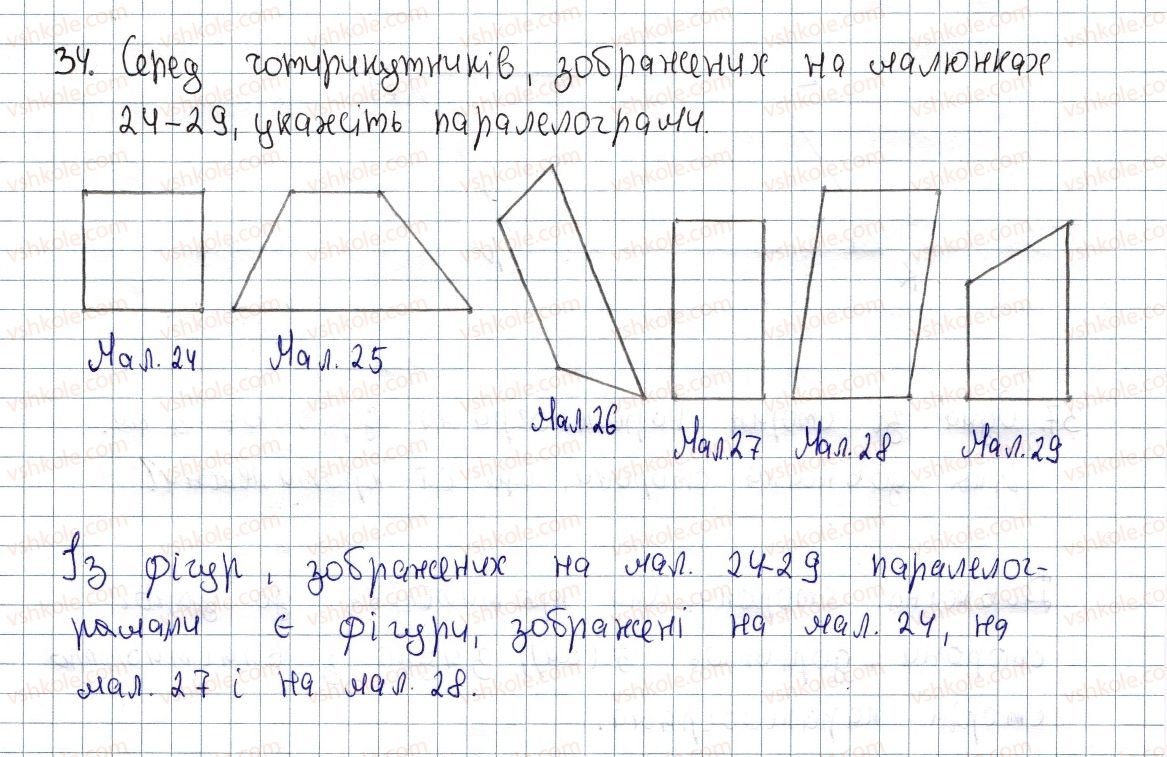 34. Серед чотирикутників, зображених на малюнках
24-29, укажіть паралелограми.
Мал. 24
Мал. 25
Мал. 26
Мал. 27
Мал. 28
Мал. 29
Із фігур, зображених на мал. 24-29 паралелог-
рамами є фігури, зображені на мал. 24, на
мал. 27 і на мал. 28.
vshkole.com